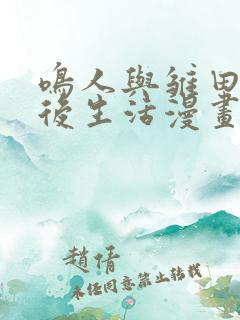 鳴人與雛田
後生活漫畫
趙倩
未任同意禁止轉載